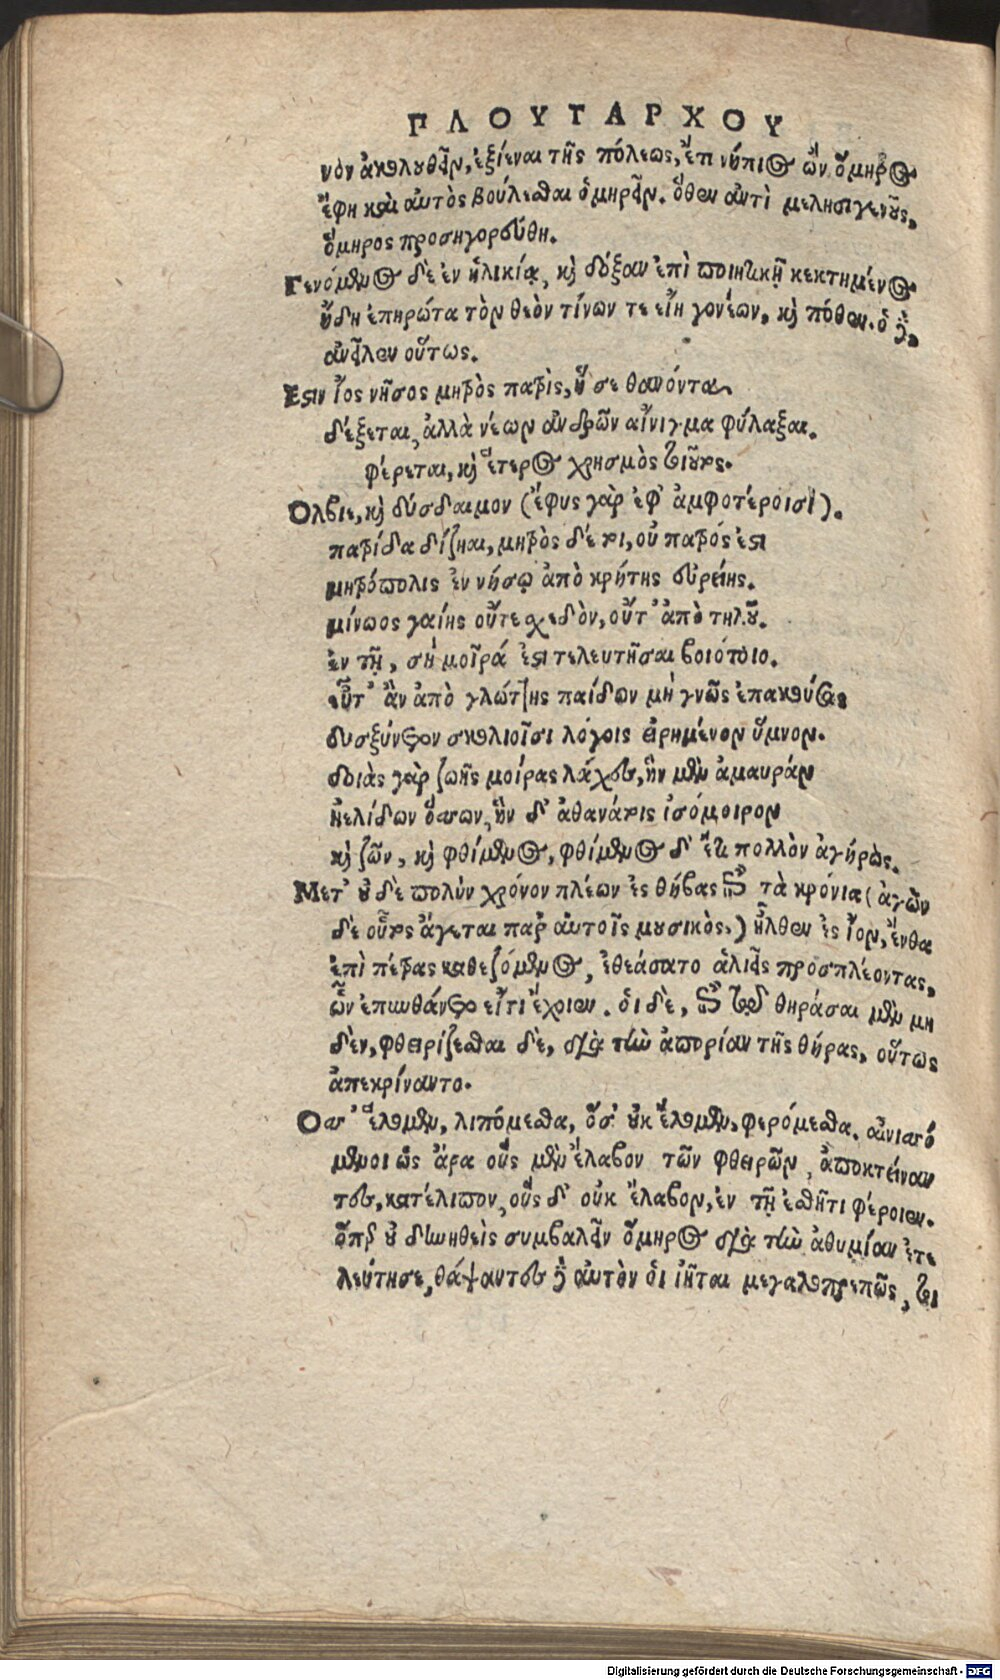 ΠΛΟΥΤΑΡΧΟΥ
νον ἀκολουθεῖν, ἐξιέναι τῆς πόλεως, ἔτι νήπιος ὢν ὅμηρος
ἔφη καὶ αὐτὸς βούλεσθαι ὁμηρεῖν. ὅθεν ἀντὶ μελησιγενοῦς,
ὅμηρος προσηγορεύθη.
Γενόμενος δὲ ἐν ἡλικίᾳ, καὶ δόξαν ἐπὶ ποιητικῇ κεκτημένος
ἤδη ἐπηρώτα τὸν θεὸν τίνων τε εἴη γονέων, καὶ πόθεν. ὁ δὲ,
ἀνεῖλεν οὕτως.
Ἔστιν ἴος νῆσος μητρὸς πατρὶς, ἥ σε θανόντα
δέξεται, ἀλλὰ νέων ἀνδρῶν αἴνιγμα φύλαξαι.
φέρεται, καὶ ἕτερος χρησμὸς τοιοῦτος.
Ὄλβιε, καὶ δύσδαιμον (ἔφυς γὰρ ἐφ' ἀμφοτέροισι).
πατρίδα δίζηαι, μητρὸς δέ τοι, οὐ πατρός ἐστι
μητρόπολις ἐν νήσῳ ἀπὸ κρήτης εὐρείης.
μίνωος γαίης οὔτε σχεδὸν, οὔτ' ἀπὸ τηλοῦ.
ἐν τῇ, σὴ μοῖρά ἐστι τελευτῆσαι βοιότοιο.
εὖτ' ἂν ἀπὸ γλώττης παίδων μὴ γνῷς ἐπακούσας
δυσξύνετον σκολιοῖσι λόγοις εἰρημένον ὕμνον.
δοιὰς γὰρ ζωῆς μοίρας λάχες, ἣν μὲν ἀμαυρὰν
ἠελίδων ὄσσων, ἣν δ' ἀθανάτοις ἰσόμοιρον
καὶ ζῶν, καὶ φθίμενος, φθίμενος δ' ἔτι πολλὸν ἀγήρως.
Μετ' οὐ δὲ πολὺν χρόνον πλέων ἐς θήβας ἐπὶ τὰ κρόνια (ἀγὼν
δὲ οὗτος ἄγεται παρ' αὐτοῖς μουσικὸς.) ἦλθεν ἐς ἴον, ἔνθα
ἐπὶ πέτρας καθεζόμενος, ἐθεάσατο ἁλιεῖς προσπλέοντας,
ὧν ἐπυνθάνετο εἴ τι ἔχοιεν. ὁι δὲ, ἐπὶ τῷ θηράσαι μὲν μη
δὲν, φθειρίζεσθαι δὲ, διὰ τὴν ἀπορίαν τῆς θήρας, οὕτως
ἀπεκρίναντο.
Ὅσσ' ἕλομεν, λιπόμεσθα, ὅσ' οὐκ ἕλομεν, φερόμεσθα. αἰνισσό
μενοι ὡς ἄρα οὓς μὲν ἔλαβον τῶν φθειρῶν, ἀποκτείναν
τες, κατέλιπον, οὓς δ' οὐκ ἔλαβον, ἐν τῇ ἐσθῆτι φέροιεν.
ὅπερ οὐ δυνηθεὶς συμβαλεῖν ὅμηρος διὰ τὴν ἀθυμίαν ἐτε
λεύτησε, θάψαντες δὲ αὐτὸν ὁι ἰῆται μεγαλοπρεπῶς, τοι
Digitalisierung gefördert durch die Deutsche Forschungsgemeinschaft - DFG